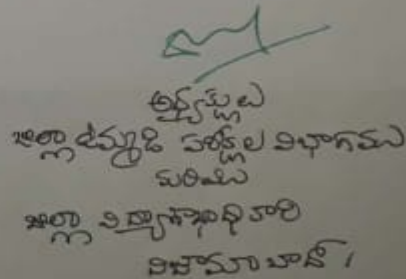 అధ్యక్షులు
జిల్లా ఉమ్మడి పరీక్షల విభాగము
మరియు
జిల్లా విద్యాశాఖాధికారి
నిజామాబాద్.